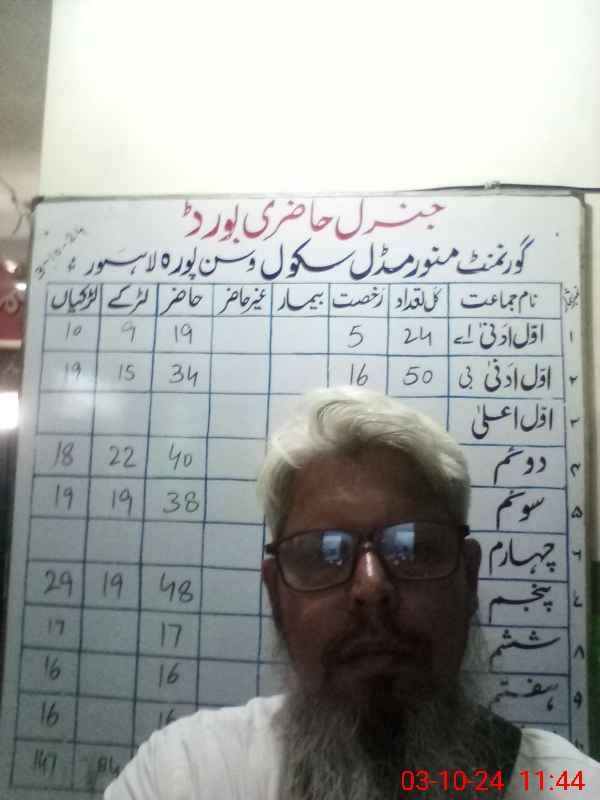 جنرل حاضری بورڈ
3-10-24
گورنمنٹ منور مڈل سکول وسن پورہ لاہور
نام جماعت کل تعداد رخصت بیمار غیر حاضر حاضر لڑکے لڑکیاں
۱ اوّل ادنیٰ اے 24 5 19 9 10
۲ اوّل ادنیٰ بی 50 16 34 15 19
اوّل اعلیٰ
دوئم 40 22 18
۵ سوئم 38 19 19
۶ چہارم
۷ پنجم 48 19 29
۸ ششم 17 17
۹ ہفتم 16 16
16 16
147
03-10-24 11:44